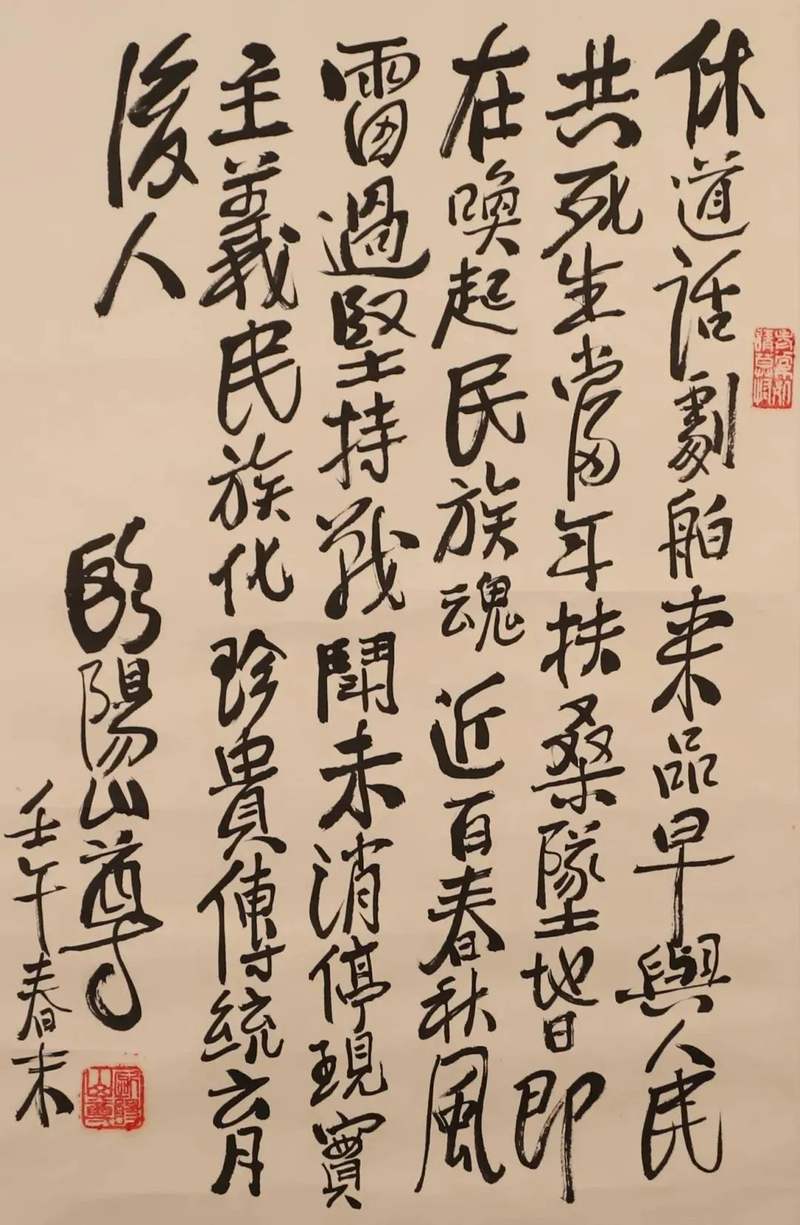 休道話劇舶来品早與人民
共死生當年扶桑墜地日即
在喚起民族魂近百春秋風
雷過堅持戰鬪未消停現實
主義民族化珍貴傳統育
後人
歐陽山尊
壬午春末
歐陽山尊